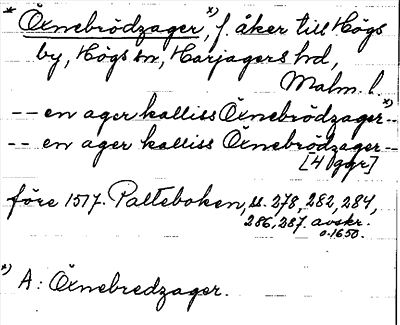 * Öxnebrödzager,*) f. åker till Högs
by, Högs sn, Harjagers hd,
Malm. l.
-- en ager kalliss Öxnebrödzager*) --
-- en ager kalliss Öxnebrödzager --
[4 ggr]
före 1517. Palteboken, ss. 278, 282, 284,
286, 287. avskr.
o. 1650.
*) A: Öxnebredzager.